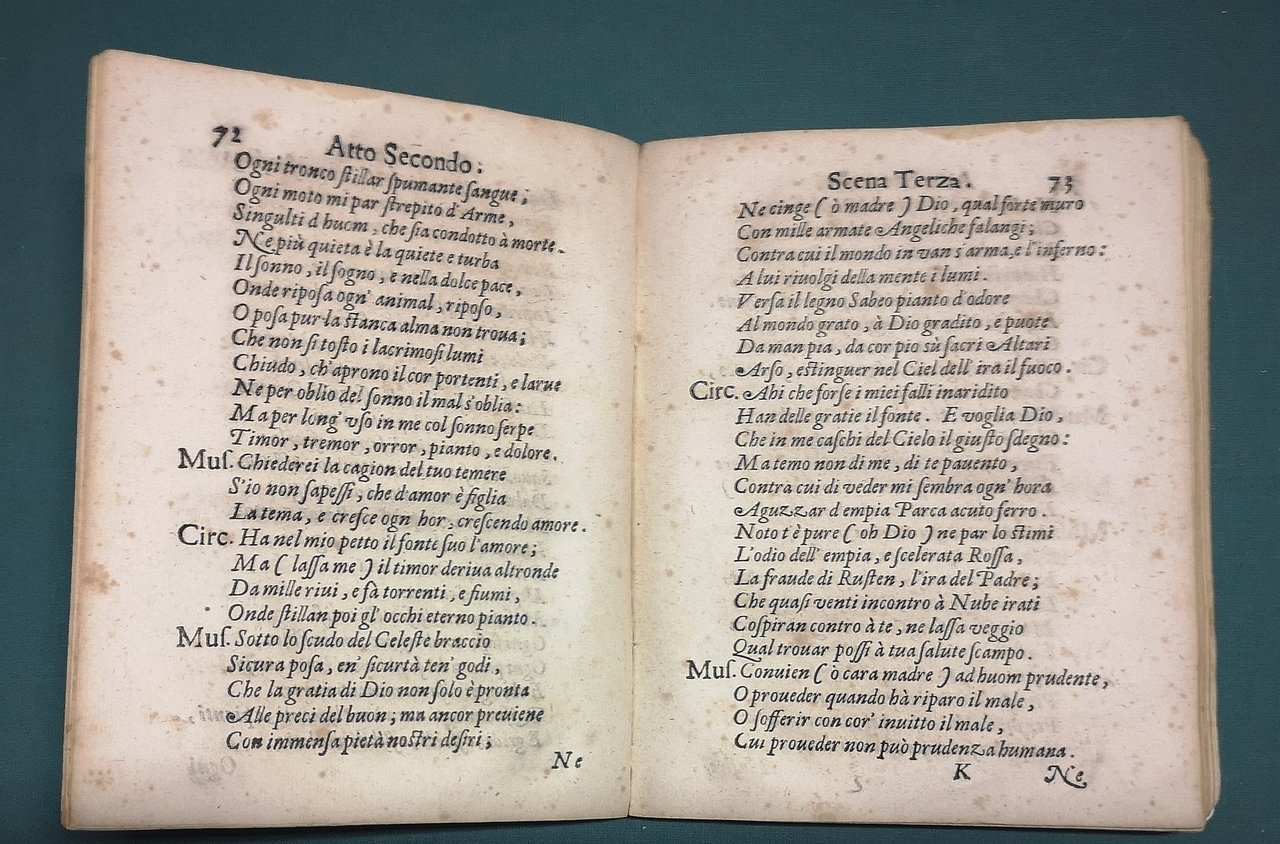 72
Atto Secondo.
Ogni tronco ſtillar ſpumante ſangue;
Ogni moto mi par ſtrepito d'Arme,
Singulti d huom, che ſia condotto à morte.
Ne più quieta è la quiete e turba
Il ſonno, il ſogno, e nella dolce pace,
Onde ripoſa ogn' animal, ripoſo,
O poſa pur la ſtanca alma non troua;
Che non ſi toſto i lacrimoſi lumi
Chiudo, ch'aprono il cor portenti, e larue
Ne per oblio del ſonno il mal s'oblia:
Ma per long' vſo in me col ſonno ſerpe
Timor, tremor, orror, pianto, e dolore.
Muſ. Chiederei la cagion del tuo temere
S'io non ſapeſſi, che d'amor è figlia
La tema, e creſce ogn hor, creſcendo amore.
Circ. Ha nel mio petto il fonte ſuo l'amore;
Ma ( laſſa me ) il timor deriua altronde
Da mille riui, e fà torrenti, e fiumi,
Onde ſtillan poi gl' occhi eterno pianto.
Muſ. Sotto lo ſcudo del Celeſte braccio
Sicura poſa, en' ſicurtà ten' godi,
Che la gratia di Dio non ſolo è pronta
Alle preci del buon; ma ancor preuiene
Con immenſa pietà noſtri deſiri;
Ne
Scena Terza.
73
Ne cinge ( ò madre ) Dio, qual forte muro
Con mille armate Angeliche falangi;
Contra cui il mondo in van s'arma, e l'inferno:
A lui riuolgi della mente i lumi.
Verſa il legno Sabeo pianto d'odore
Al mondo grato, à Dio gradito, e puote
Da man pia, da cor pio sù ſacri Altari
Arſo, eſtinguer nel Ciel dell' ira il fuoco.
Circ. Ahi che forſe i miei falli inaridito
Han delle gratie il fonte. E voglia Dio,
Che in me caſchi del Cielo il giuſto ſdegno:
Ma temo non di me, di te pauento,
Contra cui di veder mi ſembra ogn' hora
Aguzzar d'empia Parca acuto ferro.
Noto t'è pure ( oh Dio ) ne par lo ſtimi
L'odio dell' empia, e ſcelerata Roſſa,
La fraude di Ruſten, l'ira del Padre;
Che quaſi venti incontro à Nube irati
Coſpiran contro à te, ne laſſa veggio
Qual trouar poſſi à tua ſalute ſcampo.
Muſ. Conuien ( ò cara madre ) ad huom prudente,
O proueder quando hà riparo il male,
O ſofferir con cor' inuitto il male,
Cui proueder non può prudenza humana.
K
Ne